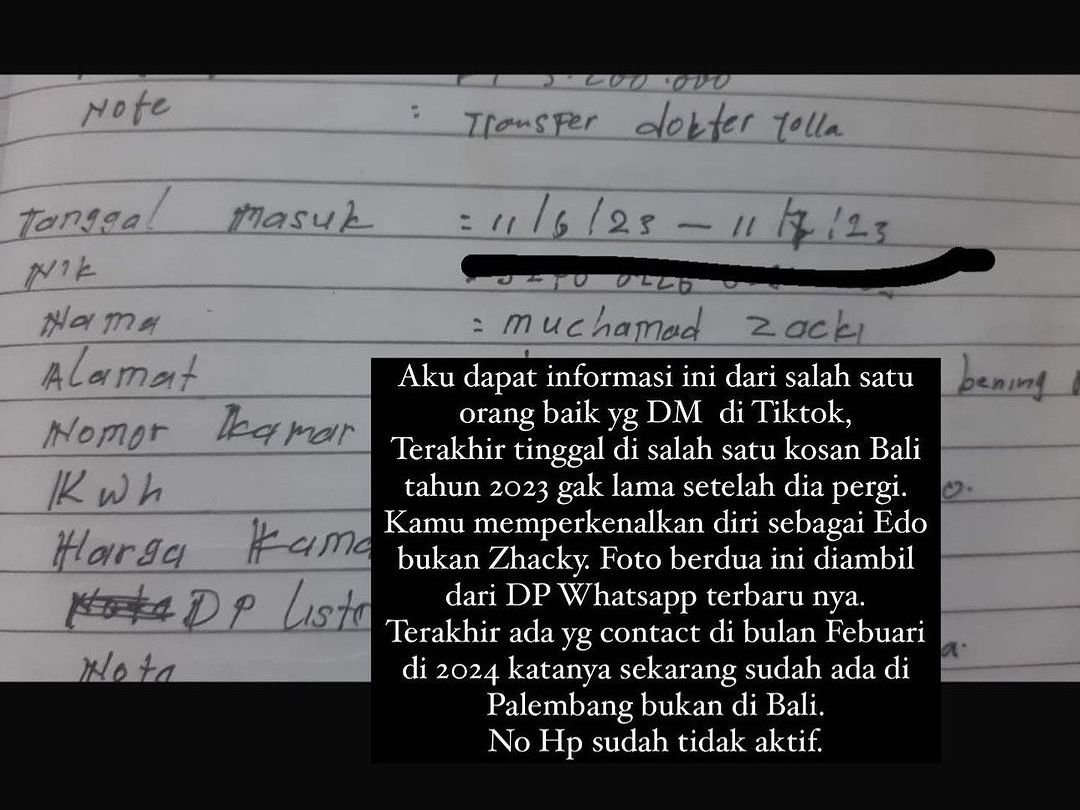 Note : Transfer dokter Yolla
Tanggal masuk = 11/6/23 — 11/7/23
Nik
Nama = muchamad zacki
Alamat bening
Nomor kamar
Kwh
Harga Kama
DP listr
Nota
Aku dapat informasi ini dari salah satu
orang baik yg DM di Tiktok,
Terakhir tinggal di salah satu kosan Bali
tahun 2023 gak lama setelah dia pergi.
Kamu memperkenalkan diri sebagai Edo
bukan Zhacky. Foto berdua ini diambil
dari DP Whatsapp terbaru nya.
Terakhir ada yg contact di bulan Febuari
di 2024 katanya sekarang sudah ada di
Palembang bukan di Bali.
No Hp sudah tidak aktif.